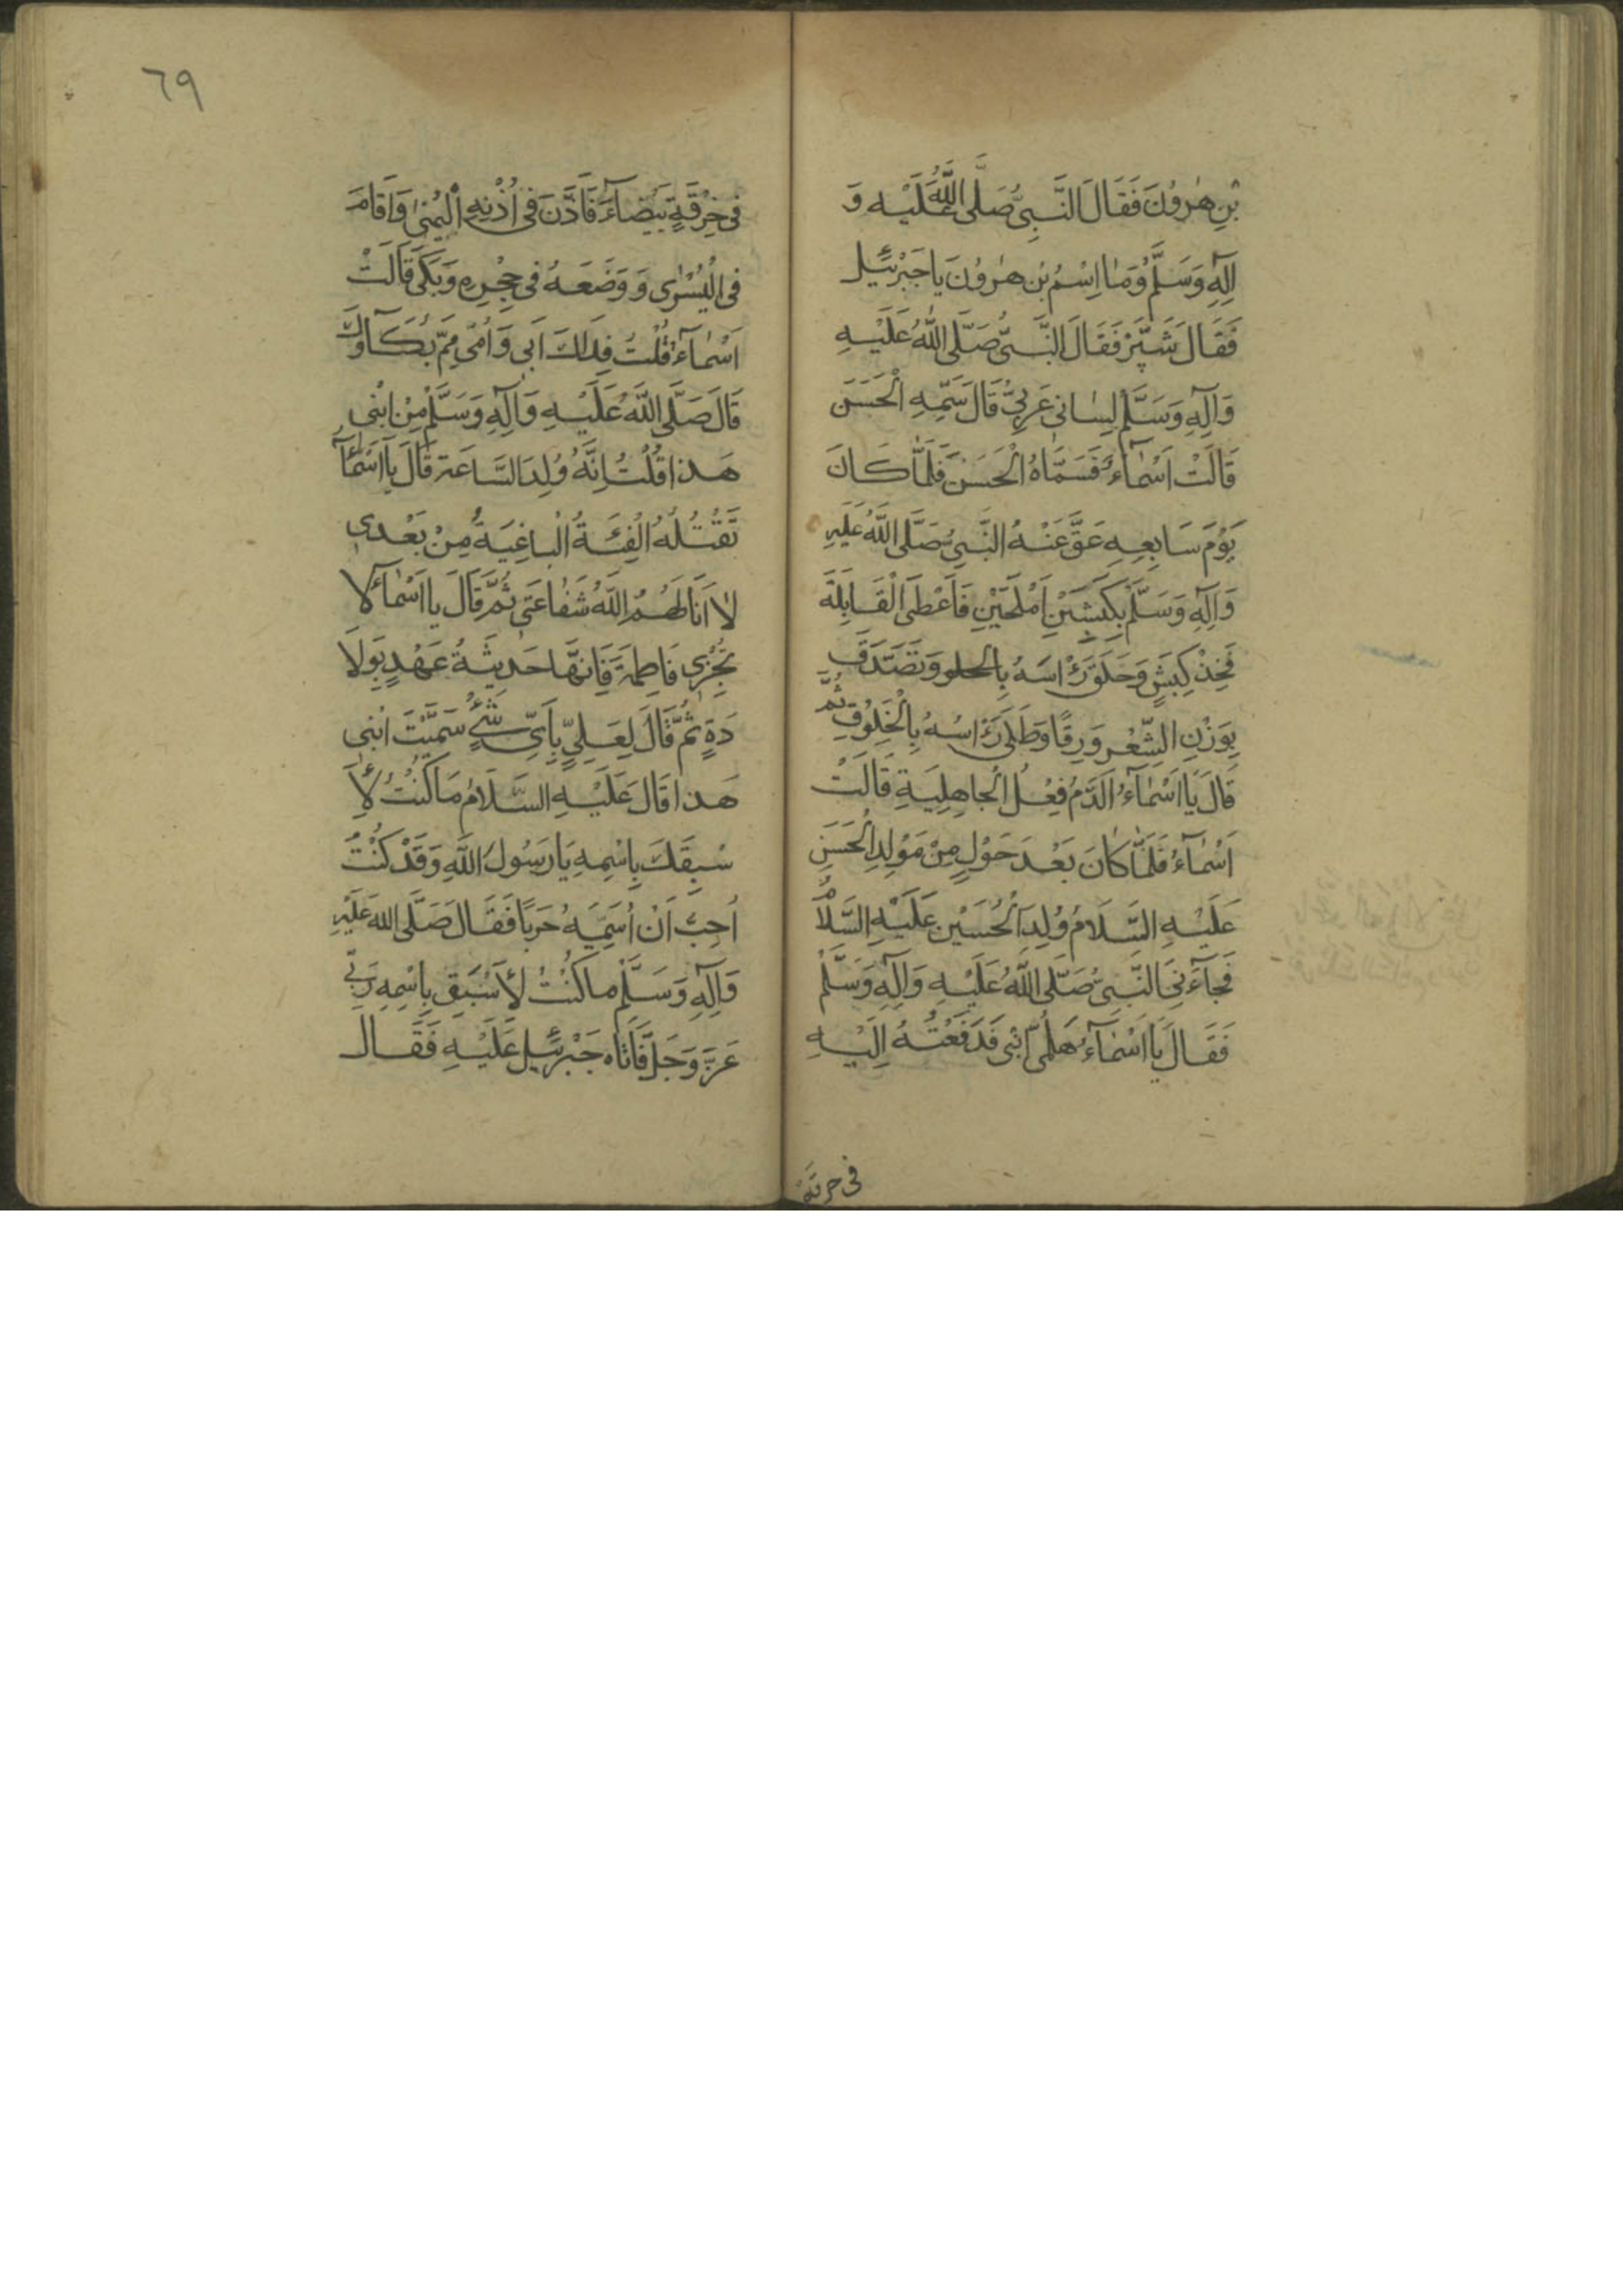 بْنِ هٰرُونَ فَقَالَ النَّبِىُّ صَلَّى اللّٰهُ عَلَيْهِ وَ
اٰلِهِ وَسَلَّمَ وَمَا اِسْمُ بْنِ هٰرُونَ يا جَبْرَئيل
فَقَالَ شَبَّرْ فَقَالَ النَّبِىُّ صَلَّى اللّٰهُ عَلَيْهِ
وَآلِهِ وَسَلَّمَ لِسٰانى عَرَبِىٌّ قَالَ سَمِّهِ الْحَسَنَ
قَالَتْ اَسْمٰآءُ فَسَمَّاهُ الْحَسَنَ فَلَمَّا كَانَ
يَوْمَ سَابِعِهِ عَقَّ عَنْهُ النَّبِىُّ صَلَّى اللّٰهُ عَلَيْهِ
وَآلِهِ وَسَلَّمَ بِكَبْشَيْنِ اَمْلَحَيْنِ فَاَعْطَى الْقَابِلَةَ
فَخِذْ كَبْشٍ وَحَلَقَ رَاْسَهُ بِالحلو وَتَصَدَّقَ
بِوَزْنِ الشَّعْرِ وَرِقًا وَطَلٰى رَاْسَهُ بِالْخَلُوْقِ ثُمَّ
قَالَ يَا اَسْمٰآءُ اَلدَّمُ فِعْلُ الْجَاهِلِيَةِ قَالَتْ
اَسْمٰآءُ فَلَمَّا كَانَ بَعْدَ حَوْلٍ مِنْ مَوْلِدِ الْحَسَنِ
عَلَيْهِ السَّلَامُ وُلِدَ الْحُسَيْن عَلَيْهِ السَّلاٰمُ
فَجَآءَنِىَ النَّبِىُّ صَلَّى اللّٰهُ عَلَيْهِ وَآلِهِ وَسَلَّمْ
فَقَالَ يَا اَسْمٰآءُ هَلُمِّى اِبْنِى فَدَفَعْتُهُ اِلَيْهِ
فى خرقة
٦٩
فى خِرْقَةٍ بَيْضَآءَ فَاَذَّنَ فى اُذْنِهِ الْيُمْنٰى وَاَقَامَ
فى الْيُسْرٰى وَ وَضَعَهُ فى حِجْرِهِ وَبَكٰى قَالَتْ
اَسْمٰآءُ قُلْتُ فِدَاكَ اَبى وَاُمّى مِمَّ بُكَآؤُكَ
قَالَ صَلَّى اللّٰهُ عَلَيْهِ وَآلِهِ وَسَلَّمَ مِنْ ابْنى
هَذا قُلْتُ اِنَّهُ وُلِدَ السَّاعَة قَالَ يَا اَسْمٰآءُ
تَقْتُلُهُ الْفِئَةُ الْبٰاغِيَةُ مِنْ بَعْدى
لاٰ اَنَالَهُمُ اللّٰهُ شَفٰاعَتى ثُمَّ قَالَ يا اَسْمٰآءُ لَا
تُخْبِرى فَاطِمَةَ فَاِنَّهَا حَديثَةُ عَهْدٍ بِوِلَا
دَةٍ ثُمَّ قَالَ لِعَلِىٍّ بِاَىِّ شَىْءٍ سَمَّيْتَ ابْنى
هَذا قَالَ عَلَيْهِ السَّلَامُ مَا كُنْتُ لِاَ
سْبِقَكَ بِاِسْمِهِ يَا رَسُولَ اللّٰهِ وَقَدْ كُنْتُ
اُحِبُّ اَنْ اُسَمِّيَهُ حَرْبًا فَقَالَ صَلَّى اللّٰه عَلَيْهِ
وَآلِهِ وَسَلَّم ما كُنْتُ لِاَسْبَق بِاِسْمِهِ رَبّى
عَزَّ وَجَلَّ فَاَتَاه جَبْرَئيل عَلَيْهِ فَقَالَ